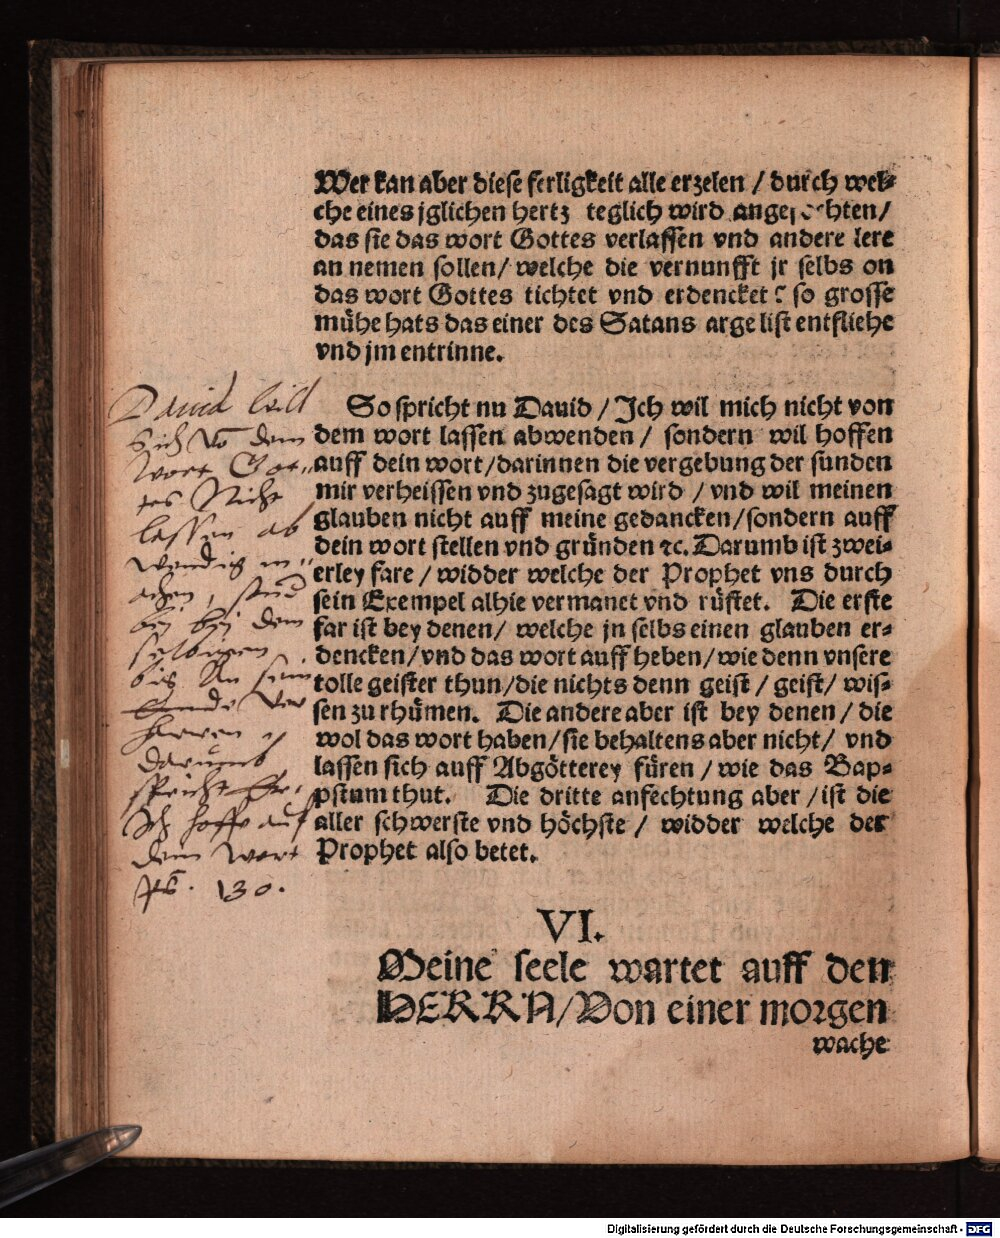 Wer kan aber diese ferligkeit alle erzelen / durch wel⸗
che eines jglichen hertz teglich wird
das sie das wort Gottes verlassen vnd andere lere
an nemen sollen/ welche die vernunfft jr selbs on
das wort Gottes tichtet vnd erdencket? so grosse
mühe hats das einer des Satans arge list entfliehe
vnd jm entrinne.
So spricht nu Dauid / Ich wil mich nicht von
dem wort lassen abwenden / sondern wil hoffen
auff dein wort/darinnen die vergebung der sunden
mir verheissen vnd zugesagt wird / vnd wil meinen
glauben nicht auff meine gedancken/sondern auff
dein wort stellen vnd gründen ꝛc. Darumb ist zwei⸗
erley fare / widder welche der Prophet vns durch
sein Exempel alhie vermanet vnd rüstet. Die erste
far ist bey denen/ welche jn selbs einen glauben er⸗
dencken/vnd das wort auff heben/wie denn vnsere
tolle geister thun/die nichts denn geist / geist/ wis⸗
sen zu rhümen. Die andere aber ist bey denen / die
wol das wort haben/sie behaltens aber nicht/ vnd
lassen sich auff Abgötterey füren / wie das Bap⸗
pstum thut. Die dritte anfechtung aber / ist die
aller schwerste vnd höchste / widder welche der
Prophet also betet.
Dauid
sich vō dem
wort Got„
tes Nicht
lassen ab
wendig m„
achen,
bei dem
selbigen
bis An sein
Ende ver
harren
darumb
spricht Er.
Ich hoffe auf
dein Wort
ps. 130.
VI.
Meine seele wartet auff den
HERRN/Von einer morgen
wache
Digitalisierung gefördert durch die Deutsche Forschungsgemeinschaft - DFG